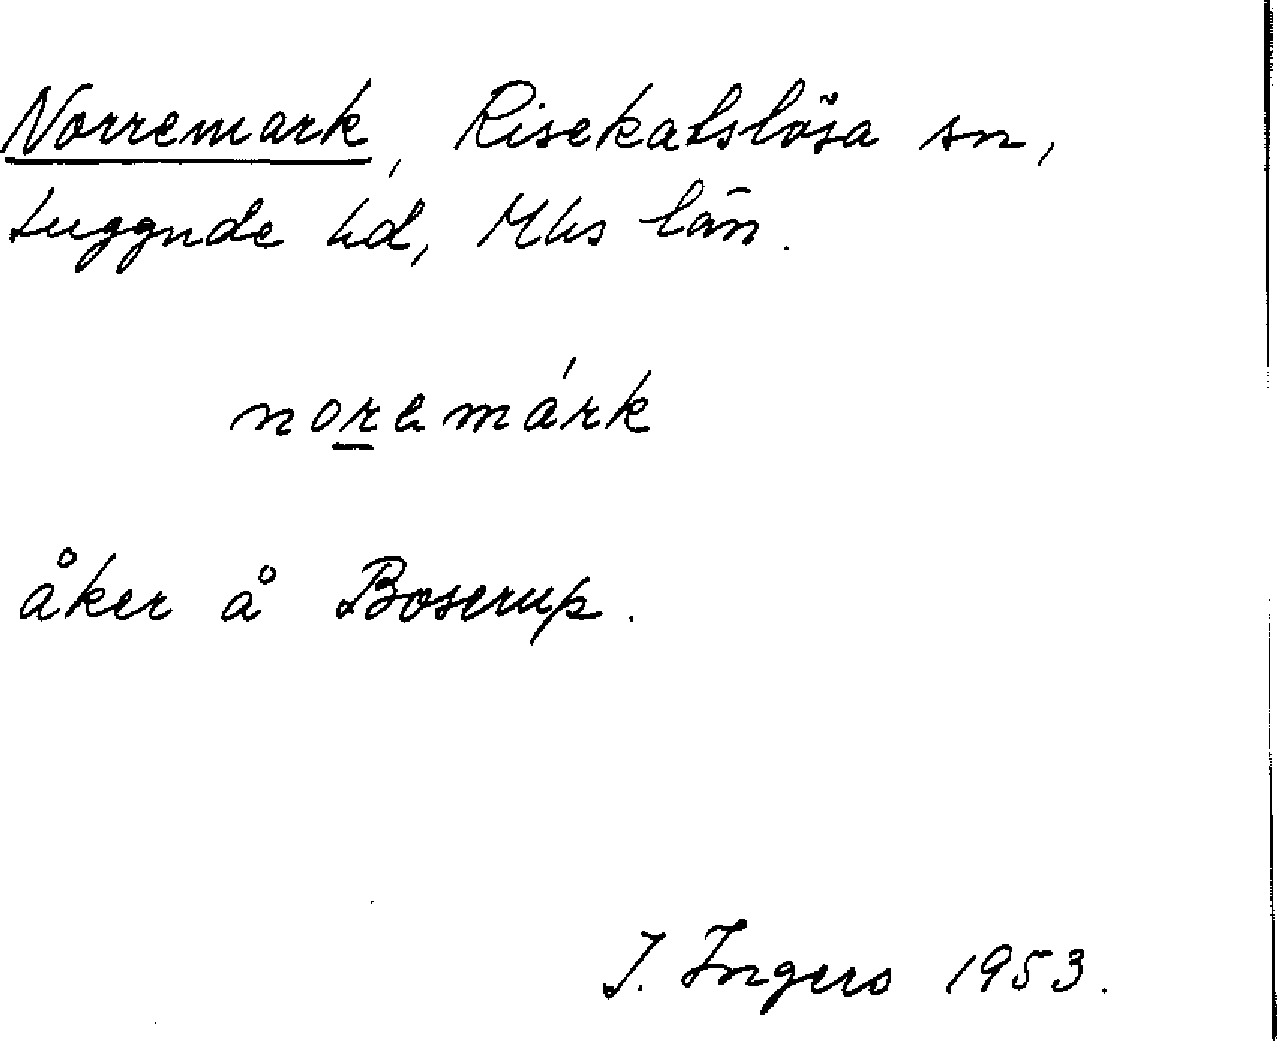 Norremark, Risekatslösa sn,
Luggude hd, Mhs län.
noremárk
åker å Boserup.
I. Ingers 1953.